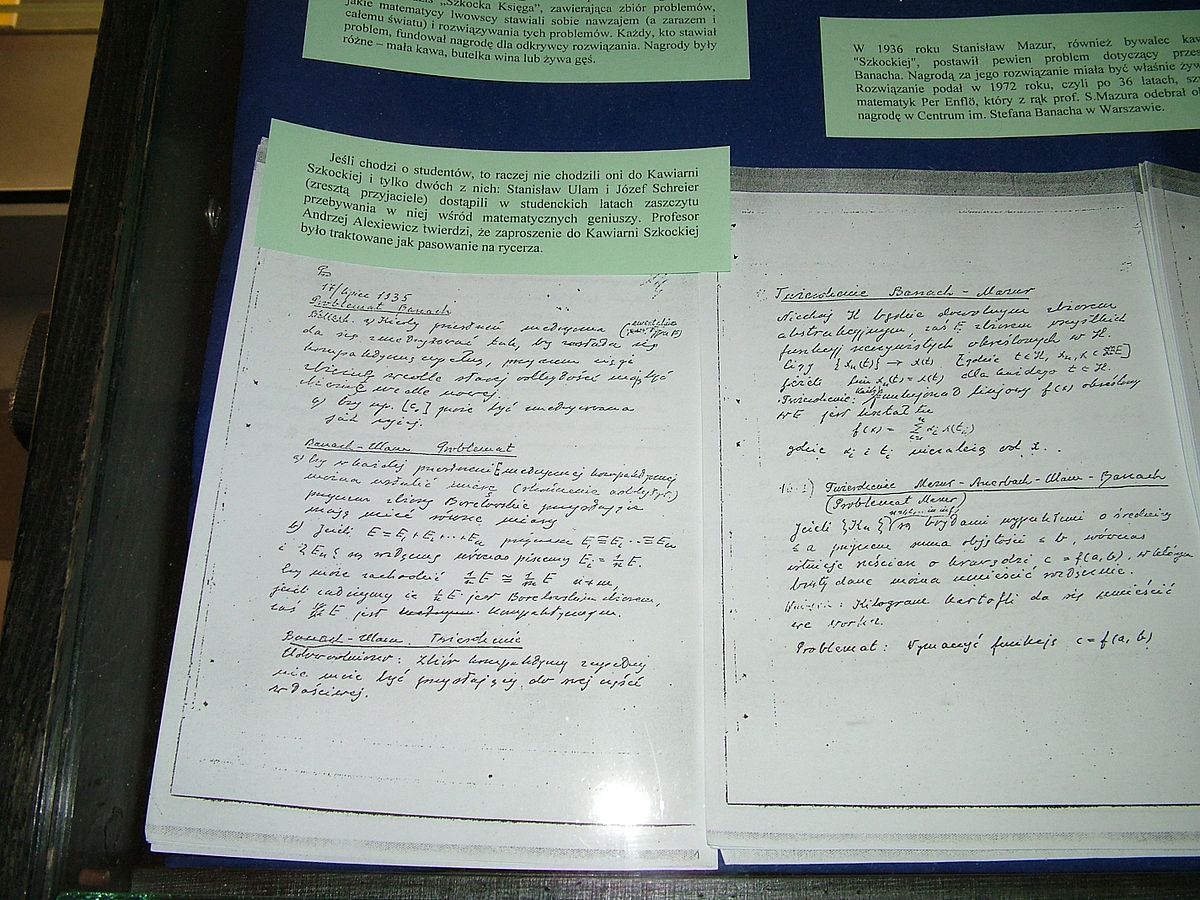 „Szkocka Księga”, zawierająca zbiór problemów,
jakie matematycy lwowscy stawiali sobie nawzajem (a zarazem i
całemu światu) i rozwiązywania tych problemów. Każdy, kto stawiał
problem, fundował nagrodę dla odkrywcy rozwiązania. Nagrody były
różne – mała kawa, butelka wina lub żywa gęś.
W 1936 roku Stanisław Mazur, również bywalec
"Szkockiej", postawił pewien problem dotyczący
Banacha. Nagrodą za jego rozwiązanie miała być właśnie
Rozwiązanie podał w 1972 roku, czyli po 36 latach,
matematyk Per Enflö, który z rąk prof. S.Mazura odebrał
nagrodę w Centrum im. Stefana Banacha w Warszawie.
Jeśli chodzi o studentów, to raczej nie chodzili oni do Kawiarni
Szkockiej i tylko dwóch z nich: Stanisław Ulam i Józef Schreier
(zresztą przyjaciele) dostąpili w studenckich latach zaszczytu
przebywania w niej wśród matematycznych geniuszy. Profesor
Andrzej Alexiewicz twierdzi, że zaproszenie do Kawiarni Szkockiej
było traktowane jak pasowanie na rycerza.
17/lipiec 1935
Problemat Banach
Kiedy przestrzeń metryczna
da się zmetryzować tak, by stała się
kompaktyczną zupełną, przyczem ciągi
zbieżne wedle starej odległości mają być
zbieżne wedle nowej.
a) czy np. [c₀] może być metryzowana
jak wyżej.
Banach-Ulam Problemat
a) Czy w każdej przestrzeni E metrycznej kompaktycznej
można ustalić miarę (skończenie addytyw.)
przyczem zbiory Borelowskie przystające
mają mieć równe miary
b) Jeżeli E = E₁+E₂+...+Eₙ przyczem E₁≅E₂...≅Eₙ
i {Eₙ} są rozłączne wówczas piszemy Eᵢ = 1/n E.
Czy może zachodzić 1/n E ≅ 1/m E n≠m,
jeśli zażądamy że 1/n E jest Borelowskim zbiorem,
zaś E jest kompaktycznym.
Banach-Ulam. Twierdzenie
Udowodniono: Zbiór kompaktyczny zupełny
nie może być przystający do swej części
właściwej.
Twierdzenie Banach-Mazur
Niechaj H będzie dowolnym zbiorem
abstrakcyjnym, zaś E zbiorem wszystkich
funkcyj rzeczywistych określonych w H.
{xₙ(t)} → x(t)
jeżeli lim xₙ(t) = x(t) dla każdego t ∈ H.
Twierdzenie: Każdy funkcjonał linjowy f(x) określony
w E jest kształtu
f(x) = Σ αᵢ x(tᵢ)
gdzie αᵢ i tᵢ niezależą od x.
Twierdzenie Mazur-Auerbach-Ulam-Banach
(Problemat Mazur)
Jeżeli {Kₙ} są bryłami wypukłemi o średnicy
≤ a przyczem suma objętości ≤ b, wówczas
istnieje sześcian o krawędzi c = f(a,b), w którym
bryły dane można umieścić rozłącznie.
Kilogram kartofli da się umieścić
we worku.
Problemat: Wyznaczyć funkcję c = f(a,b)